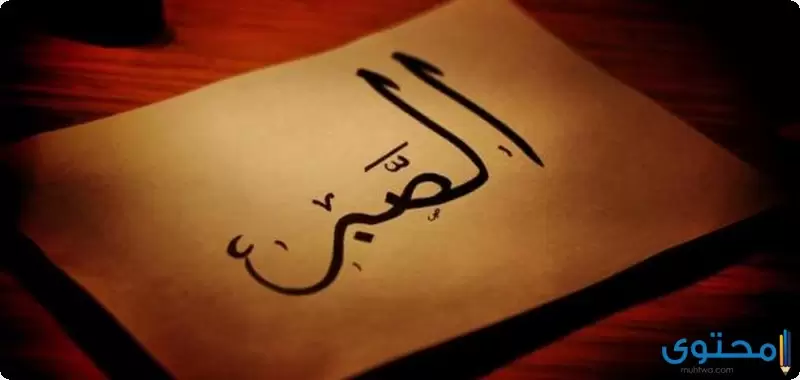 الصَّبر
محتوى
muhtwa.com